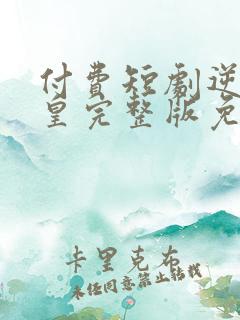 付費短劇逆
皇完整版免
卡里克布
未经同意禁止转载